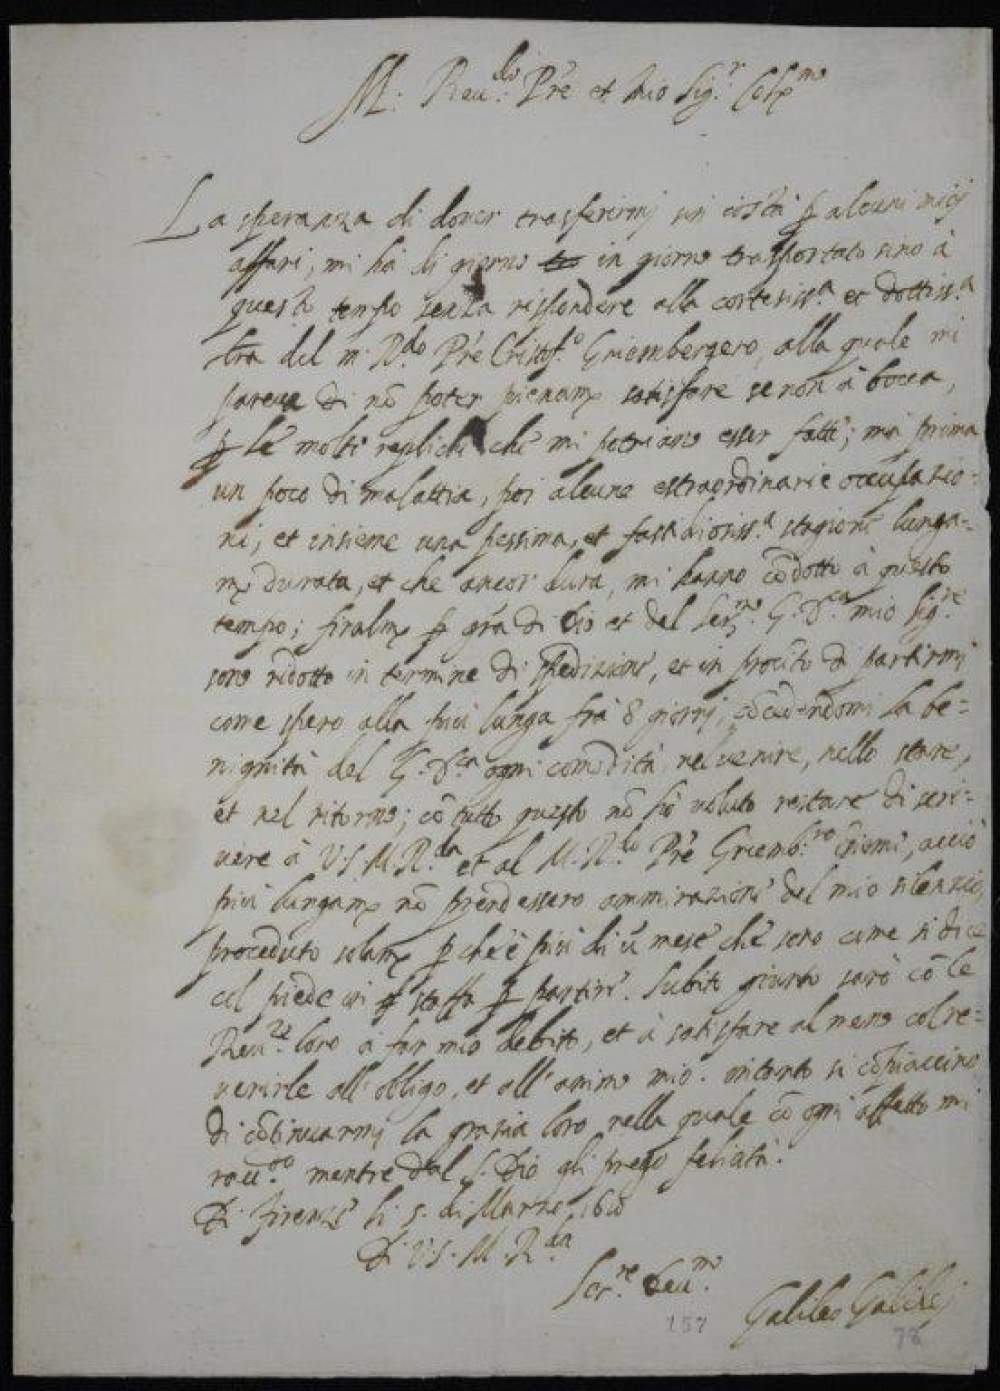 M. Rev.do P're et mio Sig.r Col.mo
La speranza di dover trasferirmi in costà p alcuni miei
affari, mi hà di giorno in giorno trasportato sino à
questo tempo senza rispondere alla cortesiss.a et dottiss.a
l'ra del m. R.do P're Cristof.o Griembergero, alla quale mi
pareva di nō poter pienam. satisfare se non à bocca,
p le molte repliche che mi potriano esser fatte; ma prima
un poco di malattia, poi alcune estraordinarie occupazio=
ni, et insieme una pessima, et fastidiosiss.a stagione lunga=
m. durata, et che ancor dura, mi hanno cōdotto à questo
tempo; finalm. p gr'a di Dio et del Ser.mo G. D.ca mio Sig.re
sono ridotto in termine di spedizione, et in procīto di partirmi
come spero alla più lunga frà 8 giorni, cōcedendomi la be=
nignità del G. D.ca ogni comodità nel venire, nello stare,
et nel ritorno; cō tutto questo nō hò voluto restare di scri=
vere à V. S. M. R.da et al M. R.do P're Griemb.ro īsieme, acciò
più lungam. nō prendessero ammirazione del mio silenzio,
proceduto solam. p che è più di ū mese che sono come si dice
col piede in staffa p partire. Subito giunto sarò cō le
Rev.ze loro à far mio debito, et à satisfare almeno col re=
verirle all'obligo, et all'animo mio. intanto si cōpiaccino
di cōtinuarmi la grazia loro, nella quale cō ogni affetto mi
racc.do mentre dal S. Dio gli prego felicità.
Di Firenze li 5. di Marzo 1610
Di V. S. M. R.da
Ser.re Dev.mo
Galileo Galilej
157
78